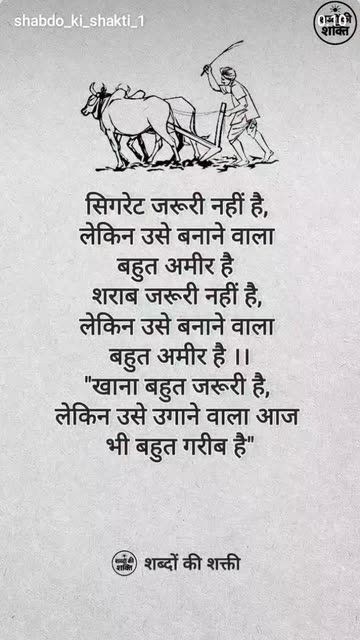 shabdo_ki_shakti_1
शब्दों की
शक्ति
सिगरेट जरूरी नहीं है,
लेकिन उसे बनाने वाला
बहुत अमीर है
शराब जरूरी नहीं है,
लेकिन उसे बनाने वाला
बहुत अमीर है ।।
"खाना बहुत जरूरी है,
लेकिन उसे उगाने वाला आज
भी बहुत गरीब है"
शब्दों की
शक्ति
शब्दों की शक्ती